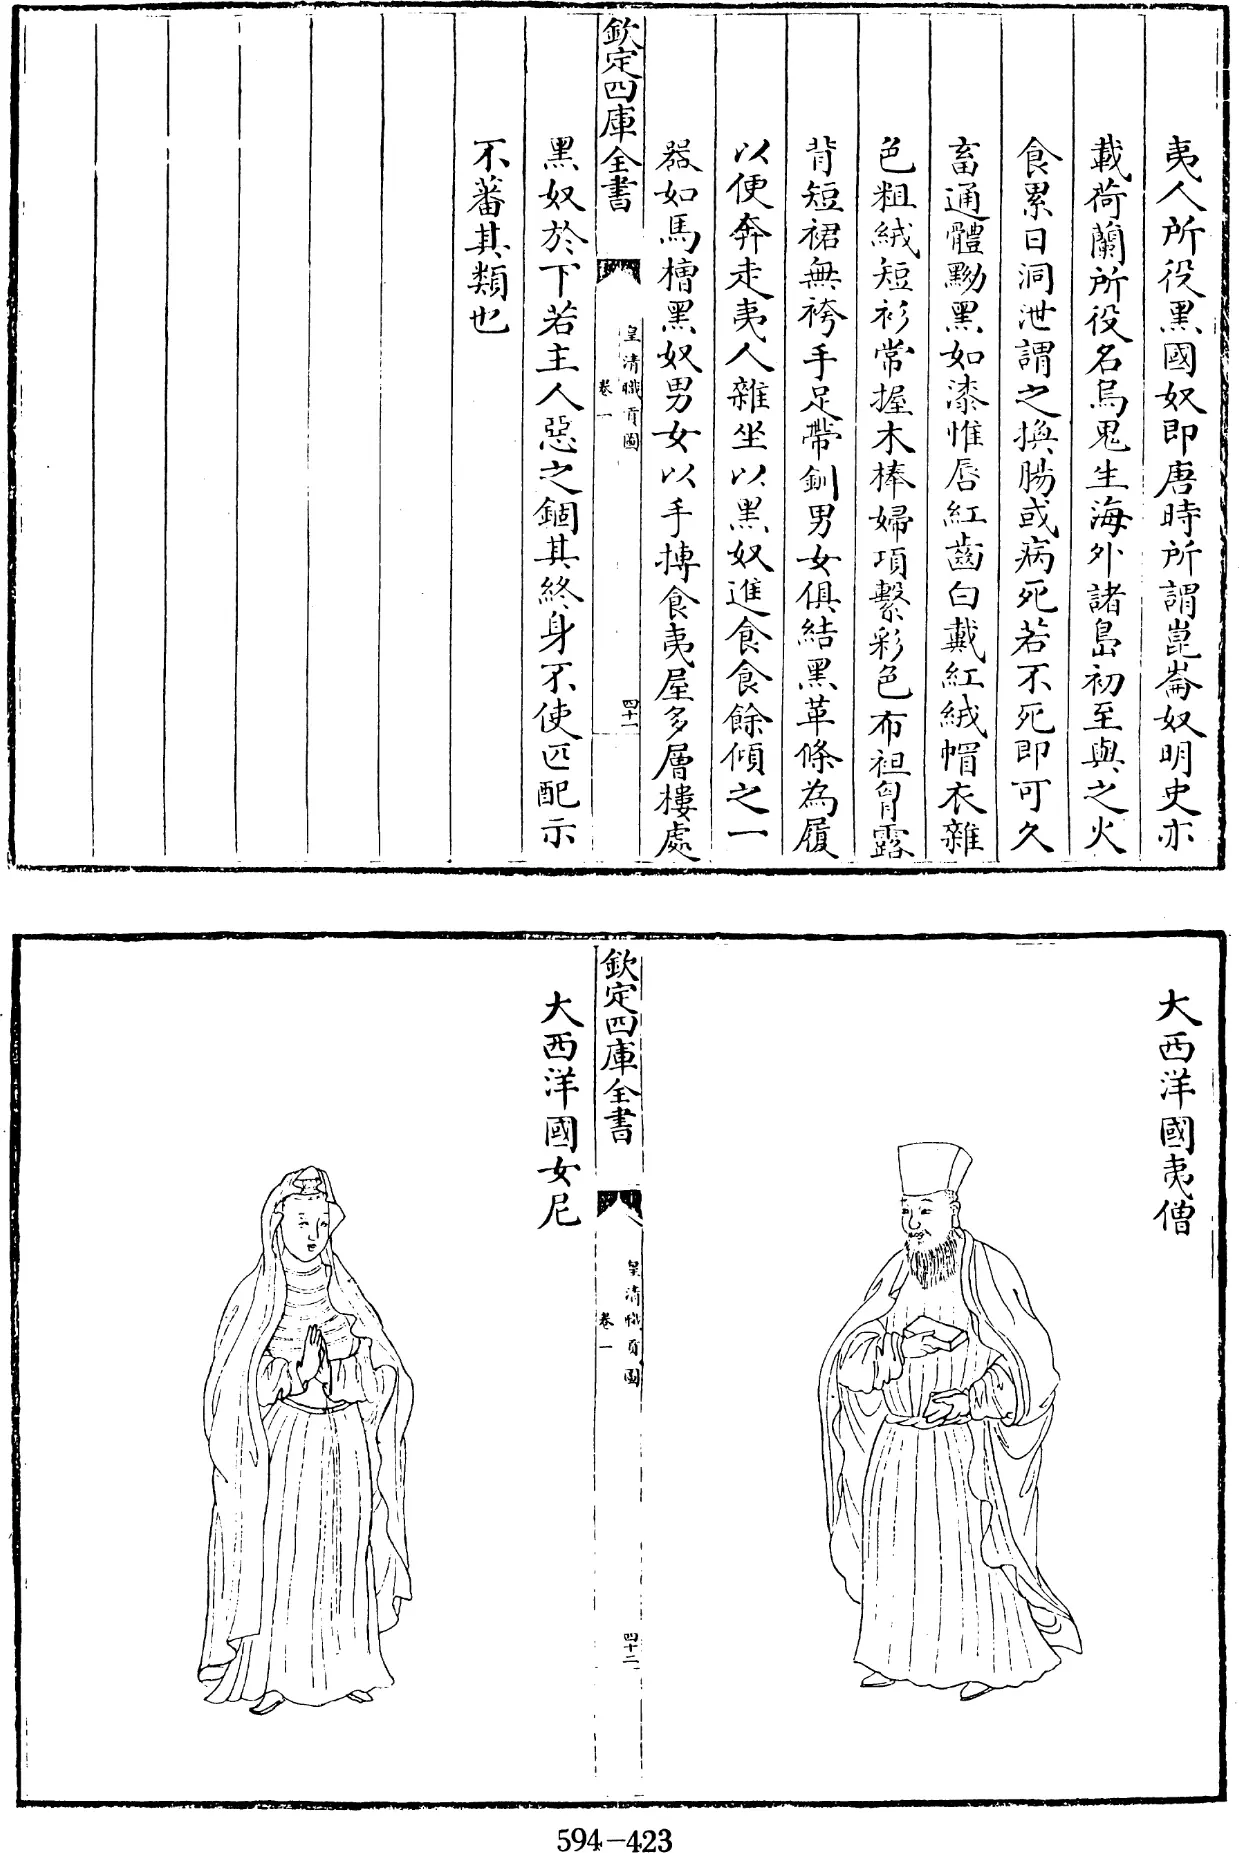 夷人所役黑國奴即唐時所謂崑崙奴明史亦
載荷蘭所役名烏鬼生海外諸島初至與之火
食累日洞泄謂之換腸或病死若不死即可久
畜通體黝黑如漆惟唇紅齒白戴紅絨帽衣雜
色粗絨短衫常握木棒婦項繫彩色布袒胷露
背短裙無袴手足帶釧男女俱結黑革條為履
以便奔走夷人雜坐以黑奴進食食餘傾之一
器如馬槽黑奴男女以手摶食夷屋多層樓處
欽定四庫全書
皇清職貢圖
卷一
四十一
黑奴於下若主人惡之錮其終身不使匹配示
不蕃其類也
大西洋國夷僧
欽定四庫全書
皇清職貢圖
卷一
四十二
大西洋國女尼
594-423